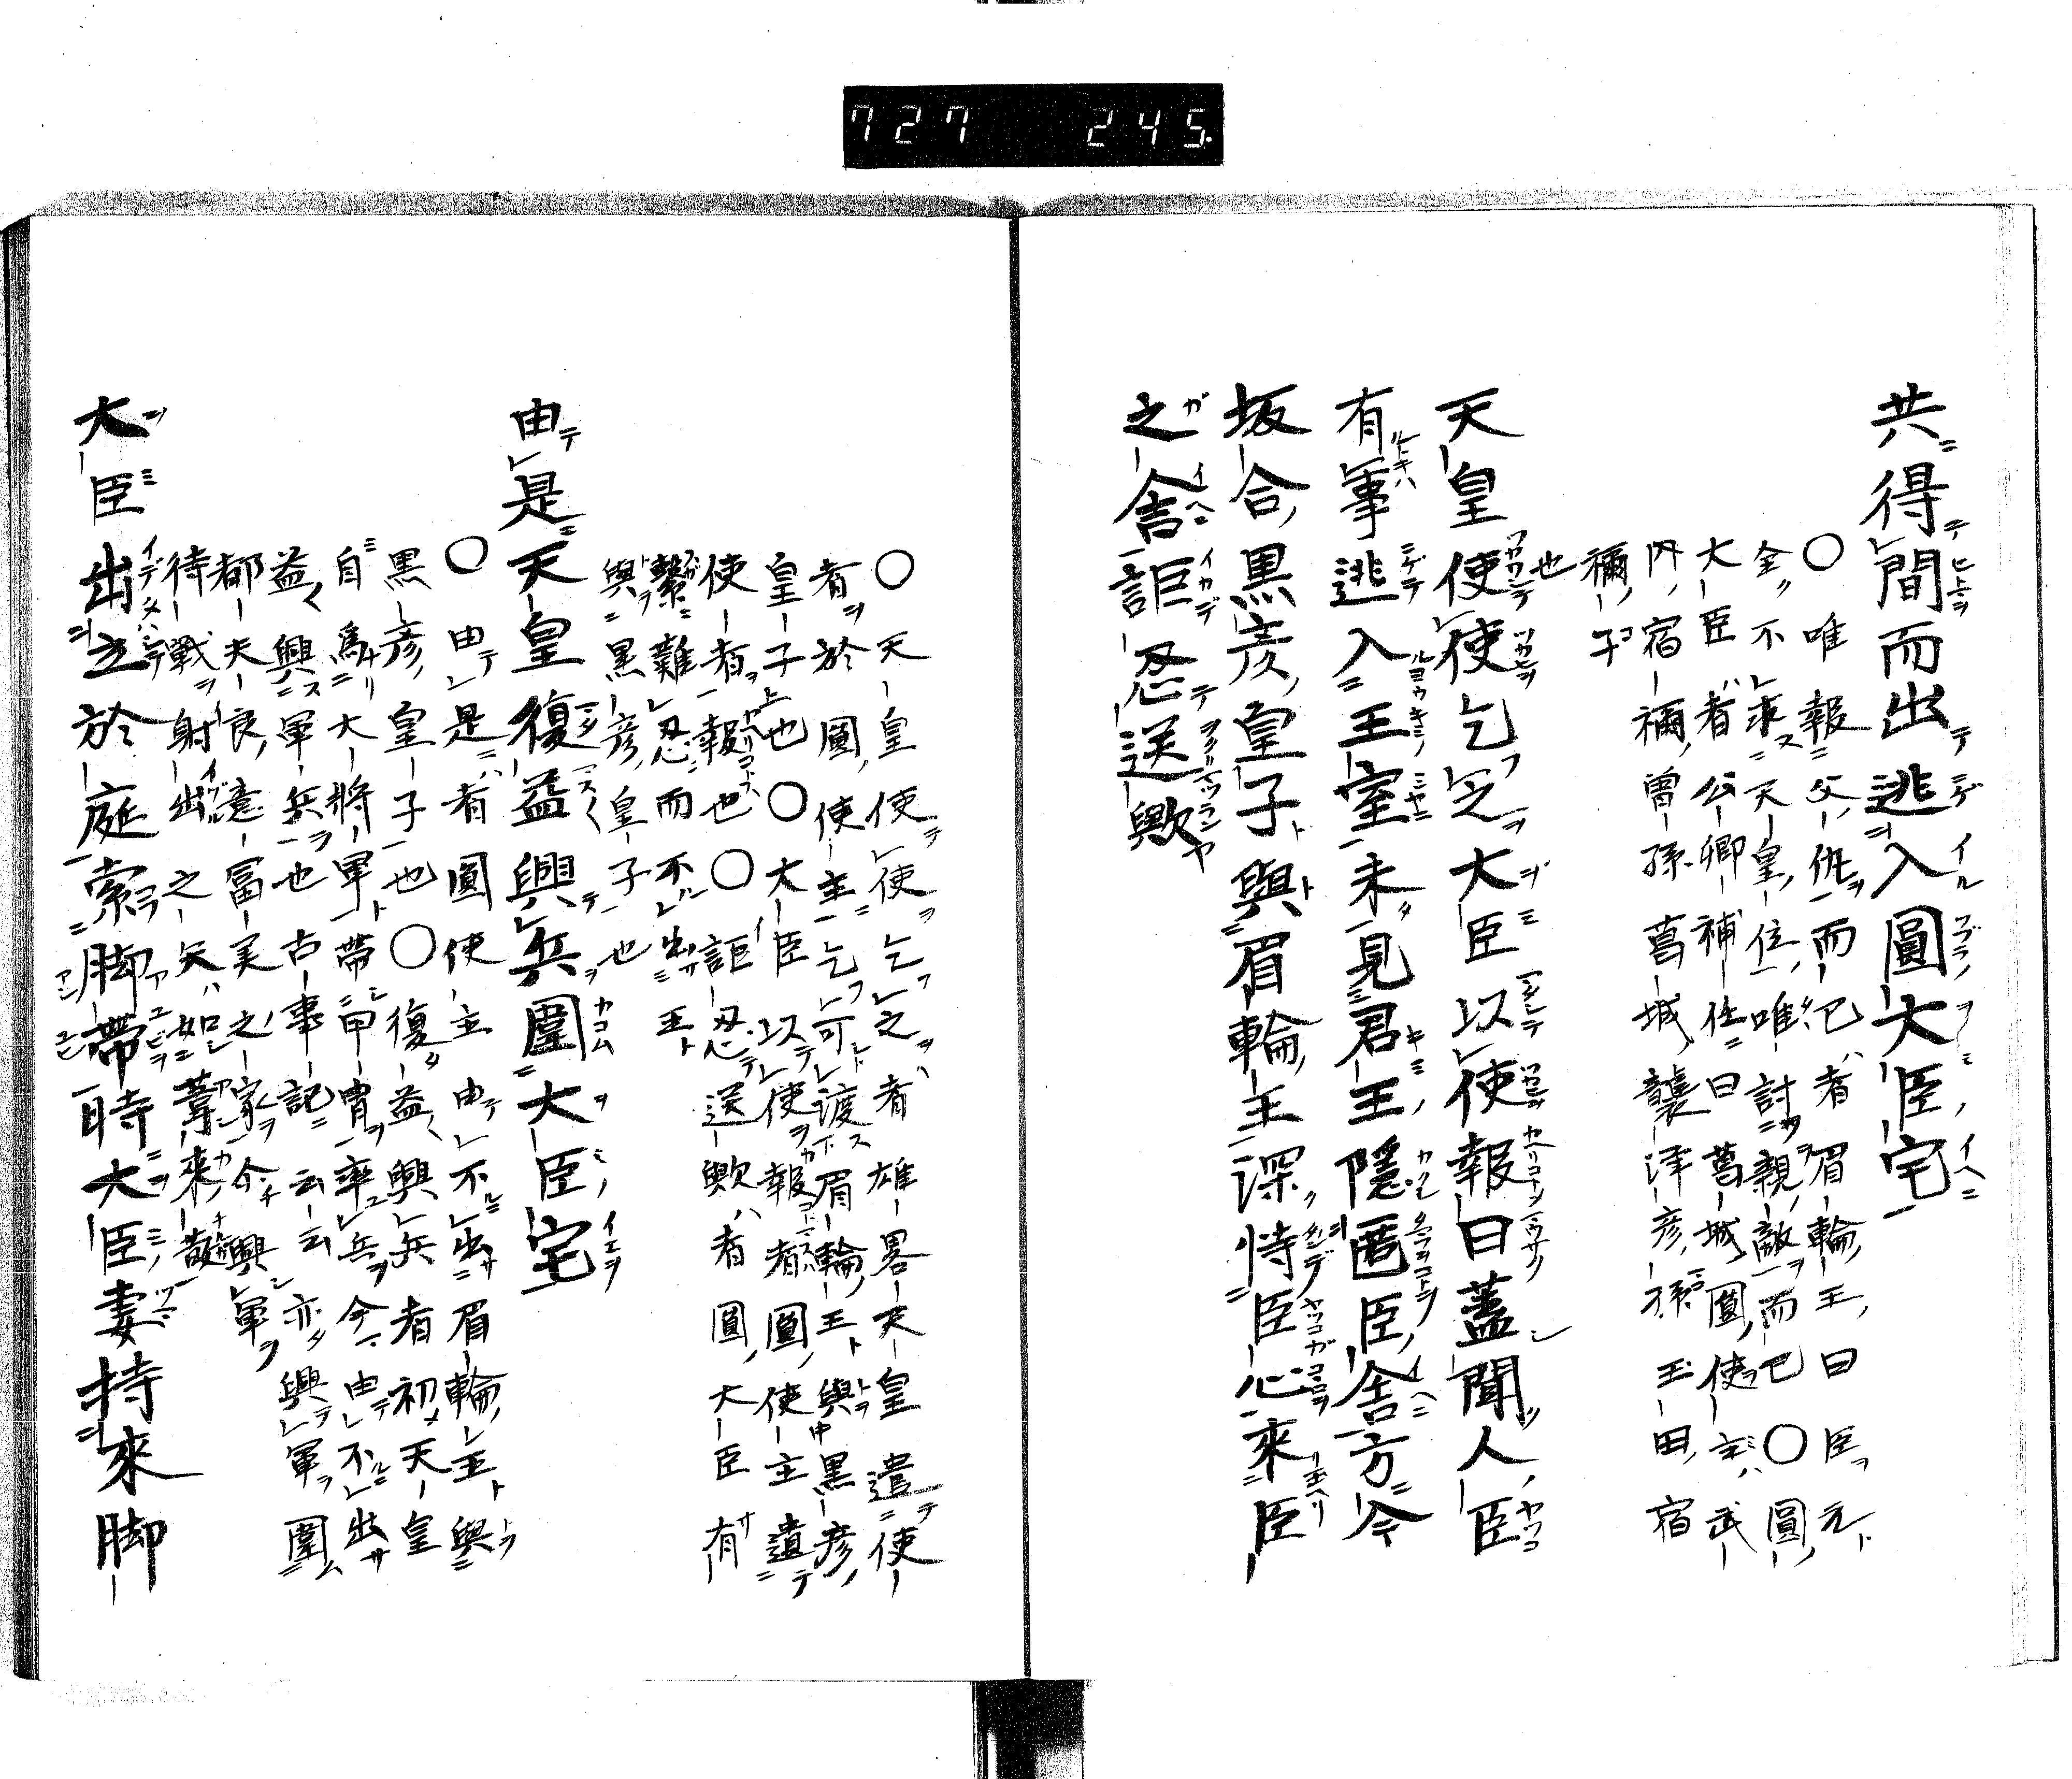 727 245
共得間而出逃入圓大臣宅
○唯報父仇而已者眉輪王曰臣元
全不求天皇位唯討親敵而已○圓
大臣者公卿補任曰葛城圓使主武
内宿禰曾孫葛城襲津彦孫玉田宿
禰子
也
天皇使使乞之大臣以使報曰蓋聞人臣
有事逃入王室未見君王隠匿臣舎方今
坂合黒彦皇子與眉輪王深恃臣心來臣
之舎詎忍送歟
○天皇使使乞之者雄畧天皇遣使
者於圓使主乞可渡眉輪王與黒彦
皇子也○大臣以使報者圓使主遣
使者報也○詎忍送歟者圓大臣有
繋難忍而不出王
與黒彦皇子也
由是天皇復益興兵圍大臣宅
○由是者圓使主由不出眉輪王與
黒彦皇子也○復益興兵者初天皇
自爲大将軍帯甲冑率兵今由不出
益興軍兵也古事記云云亦興軍圍
都夫良意富美之家令興軍
待戰射出之矢如葦來散
大臣出立於庭索脚帯時大臣妻持來脚